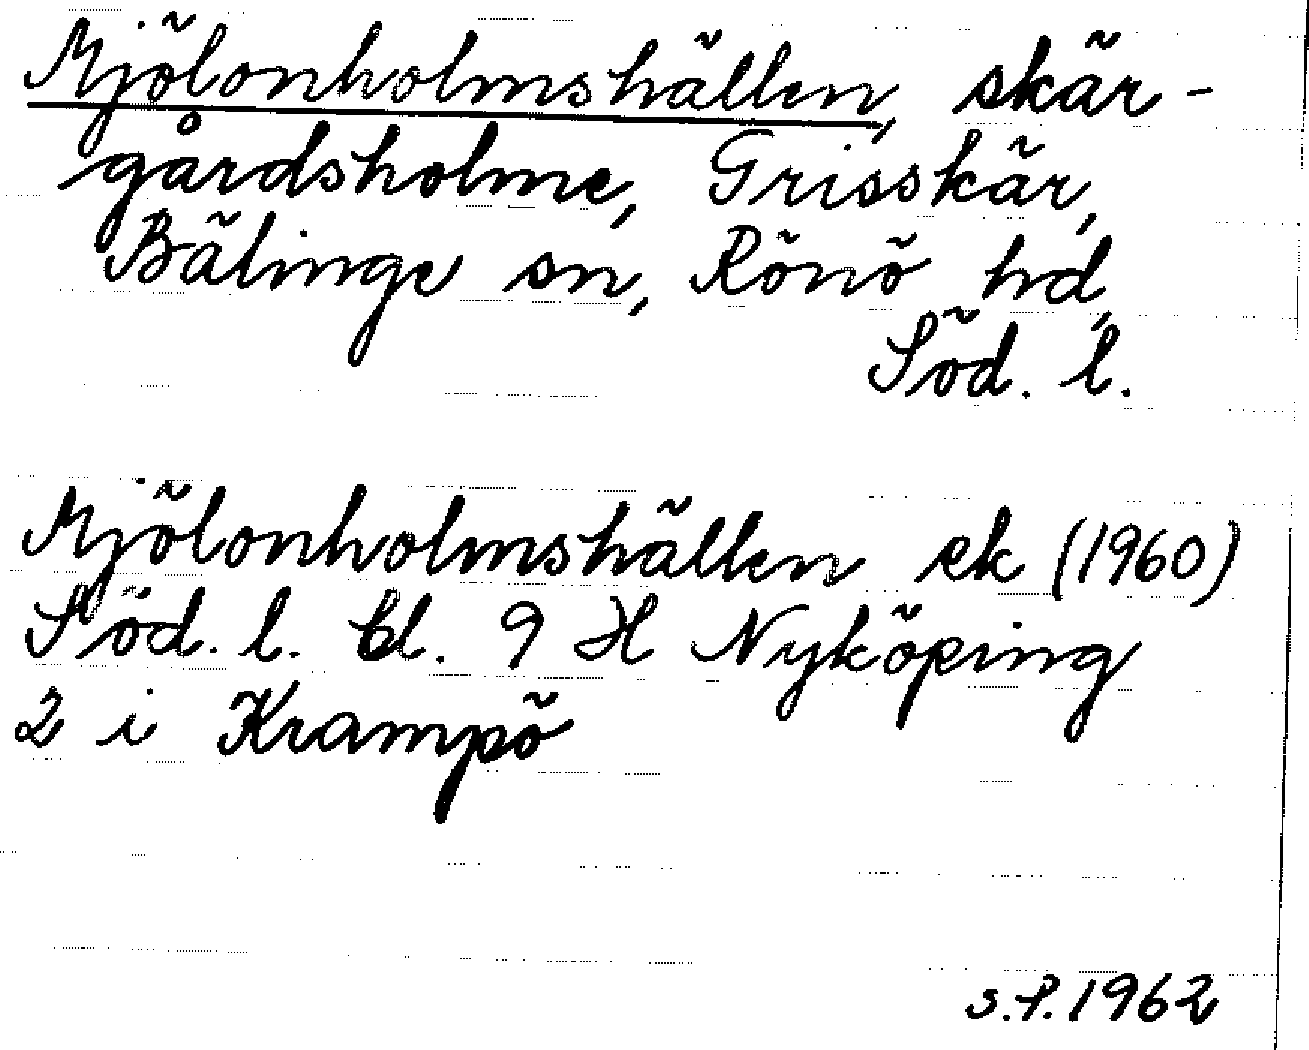 Mjölonholmshällen, skär-
gårdsholme, Grisskär,
Bälinge sn, Rönö hd,
Söd. l.
Mjölonholmshällen ek (1960)
Söd. l. bl. 9 H Nyköping
2 i Krampö
S.P. 1962